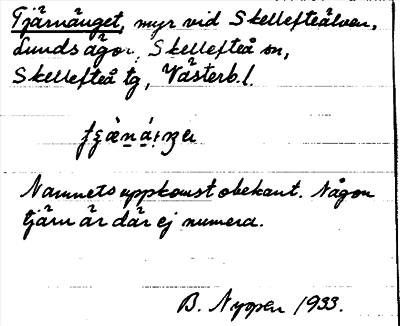 Tjärnänget, myr vid Skellefteälven,
Lunds ägor, Skellefteå sn,
Skellefteå tg, Västerb. l.
Namnets uppkomst obekant. Någon
tjärn är där ej numera.
B. Nygren 1933.